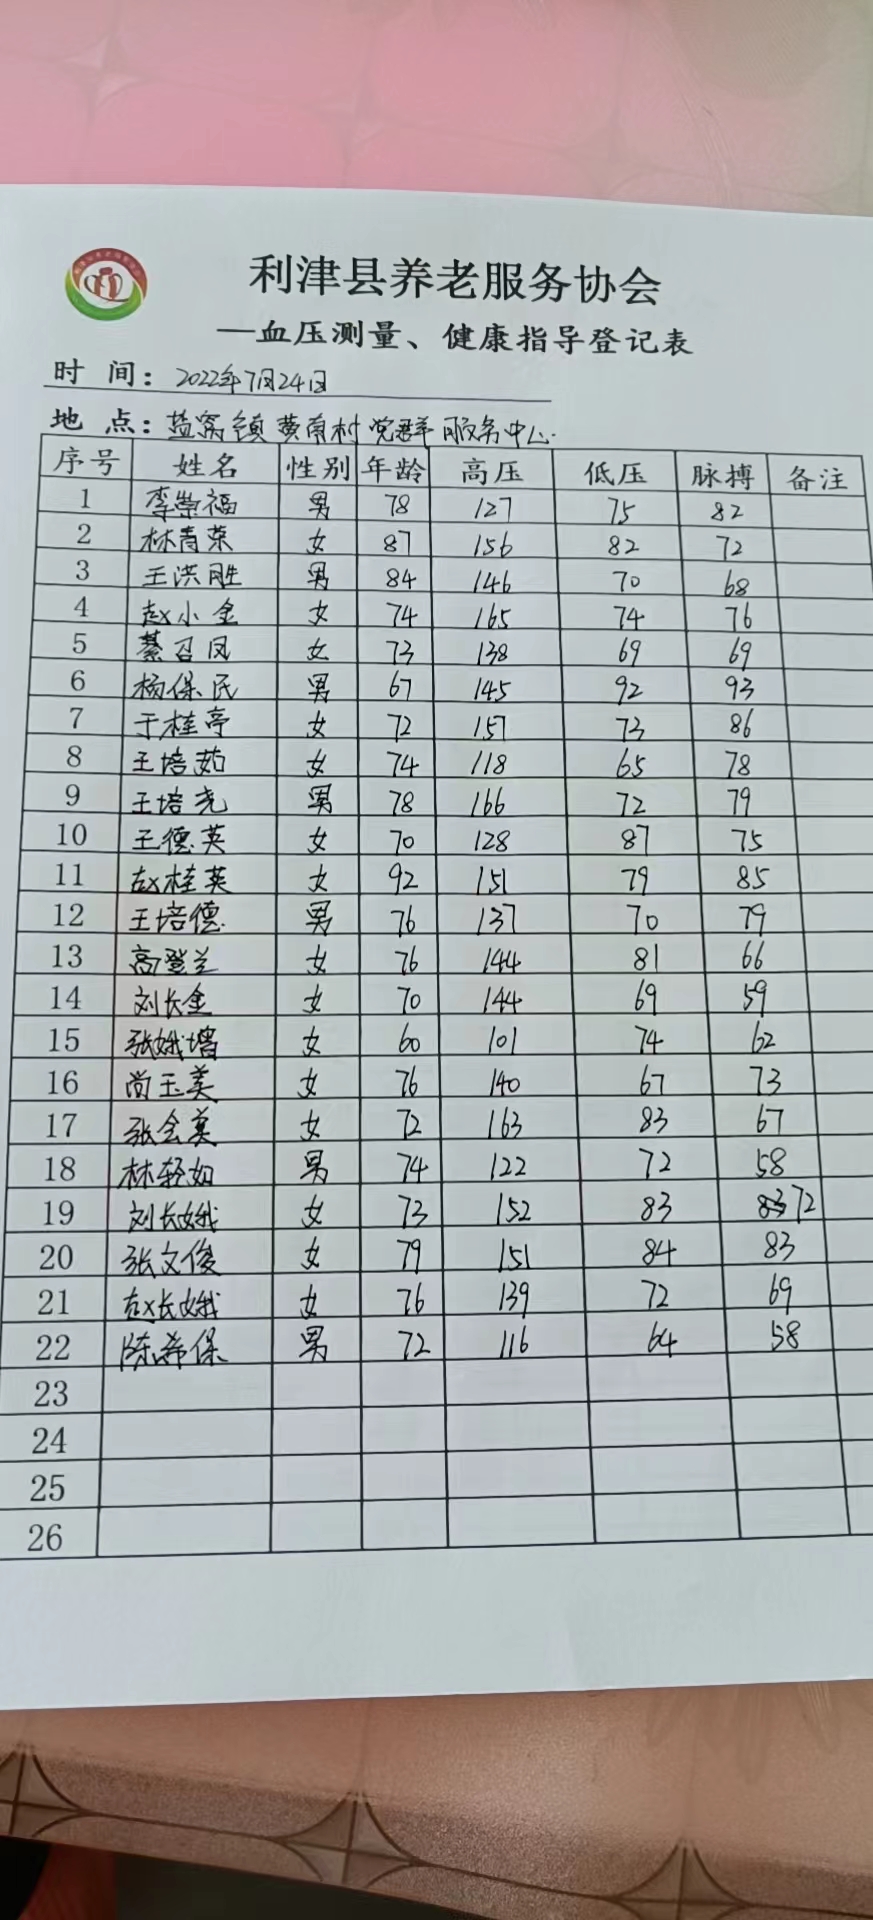 利津县养老服务协会
—血压测量、健康指导登记表
时 间：2022年7月24日
地 点：盐窝镇黄南村党群服务中心
序号 姓名 性别 年龄 高压 低压 脉搏 备注
1 李崇福 男 78 127 75 82
2 林青荣 女 87 156 82 72
3 王洪胜 男 84 146 70 68
4 赵小金 女 74 165 74 76
5 綦召凤 女 73 138 69 69
6 杨保民 男 67 145 92 93
7 于桂亭 女 72 157 73 86
8 王培茹 女 74 118 65 78
9 王培尧 男 78 166 72 79
10 王德英 女 70 128 87 75
11 赵桂英 女 92 151 79 85
12 王培德 男 76 137 70 79
13 高登兰 女 76 144 81 66
14 刘长金 女 70 144 69 59
15 张娥增 女 60 101 74 62
16 尚玉美 女 76 140 67 73
17 张会英 女 72 163 83 67
18 林轻如 男 74 122 72 58
19 刘长娥 女 73 152 83 72
20 张文俊 女 79 151 84 83
21 赵长娥 女 76 139 72 69
22 陈希保 男 72 116 64 58
23
24
25
26